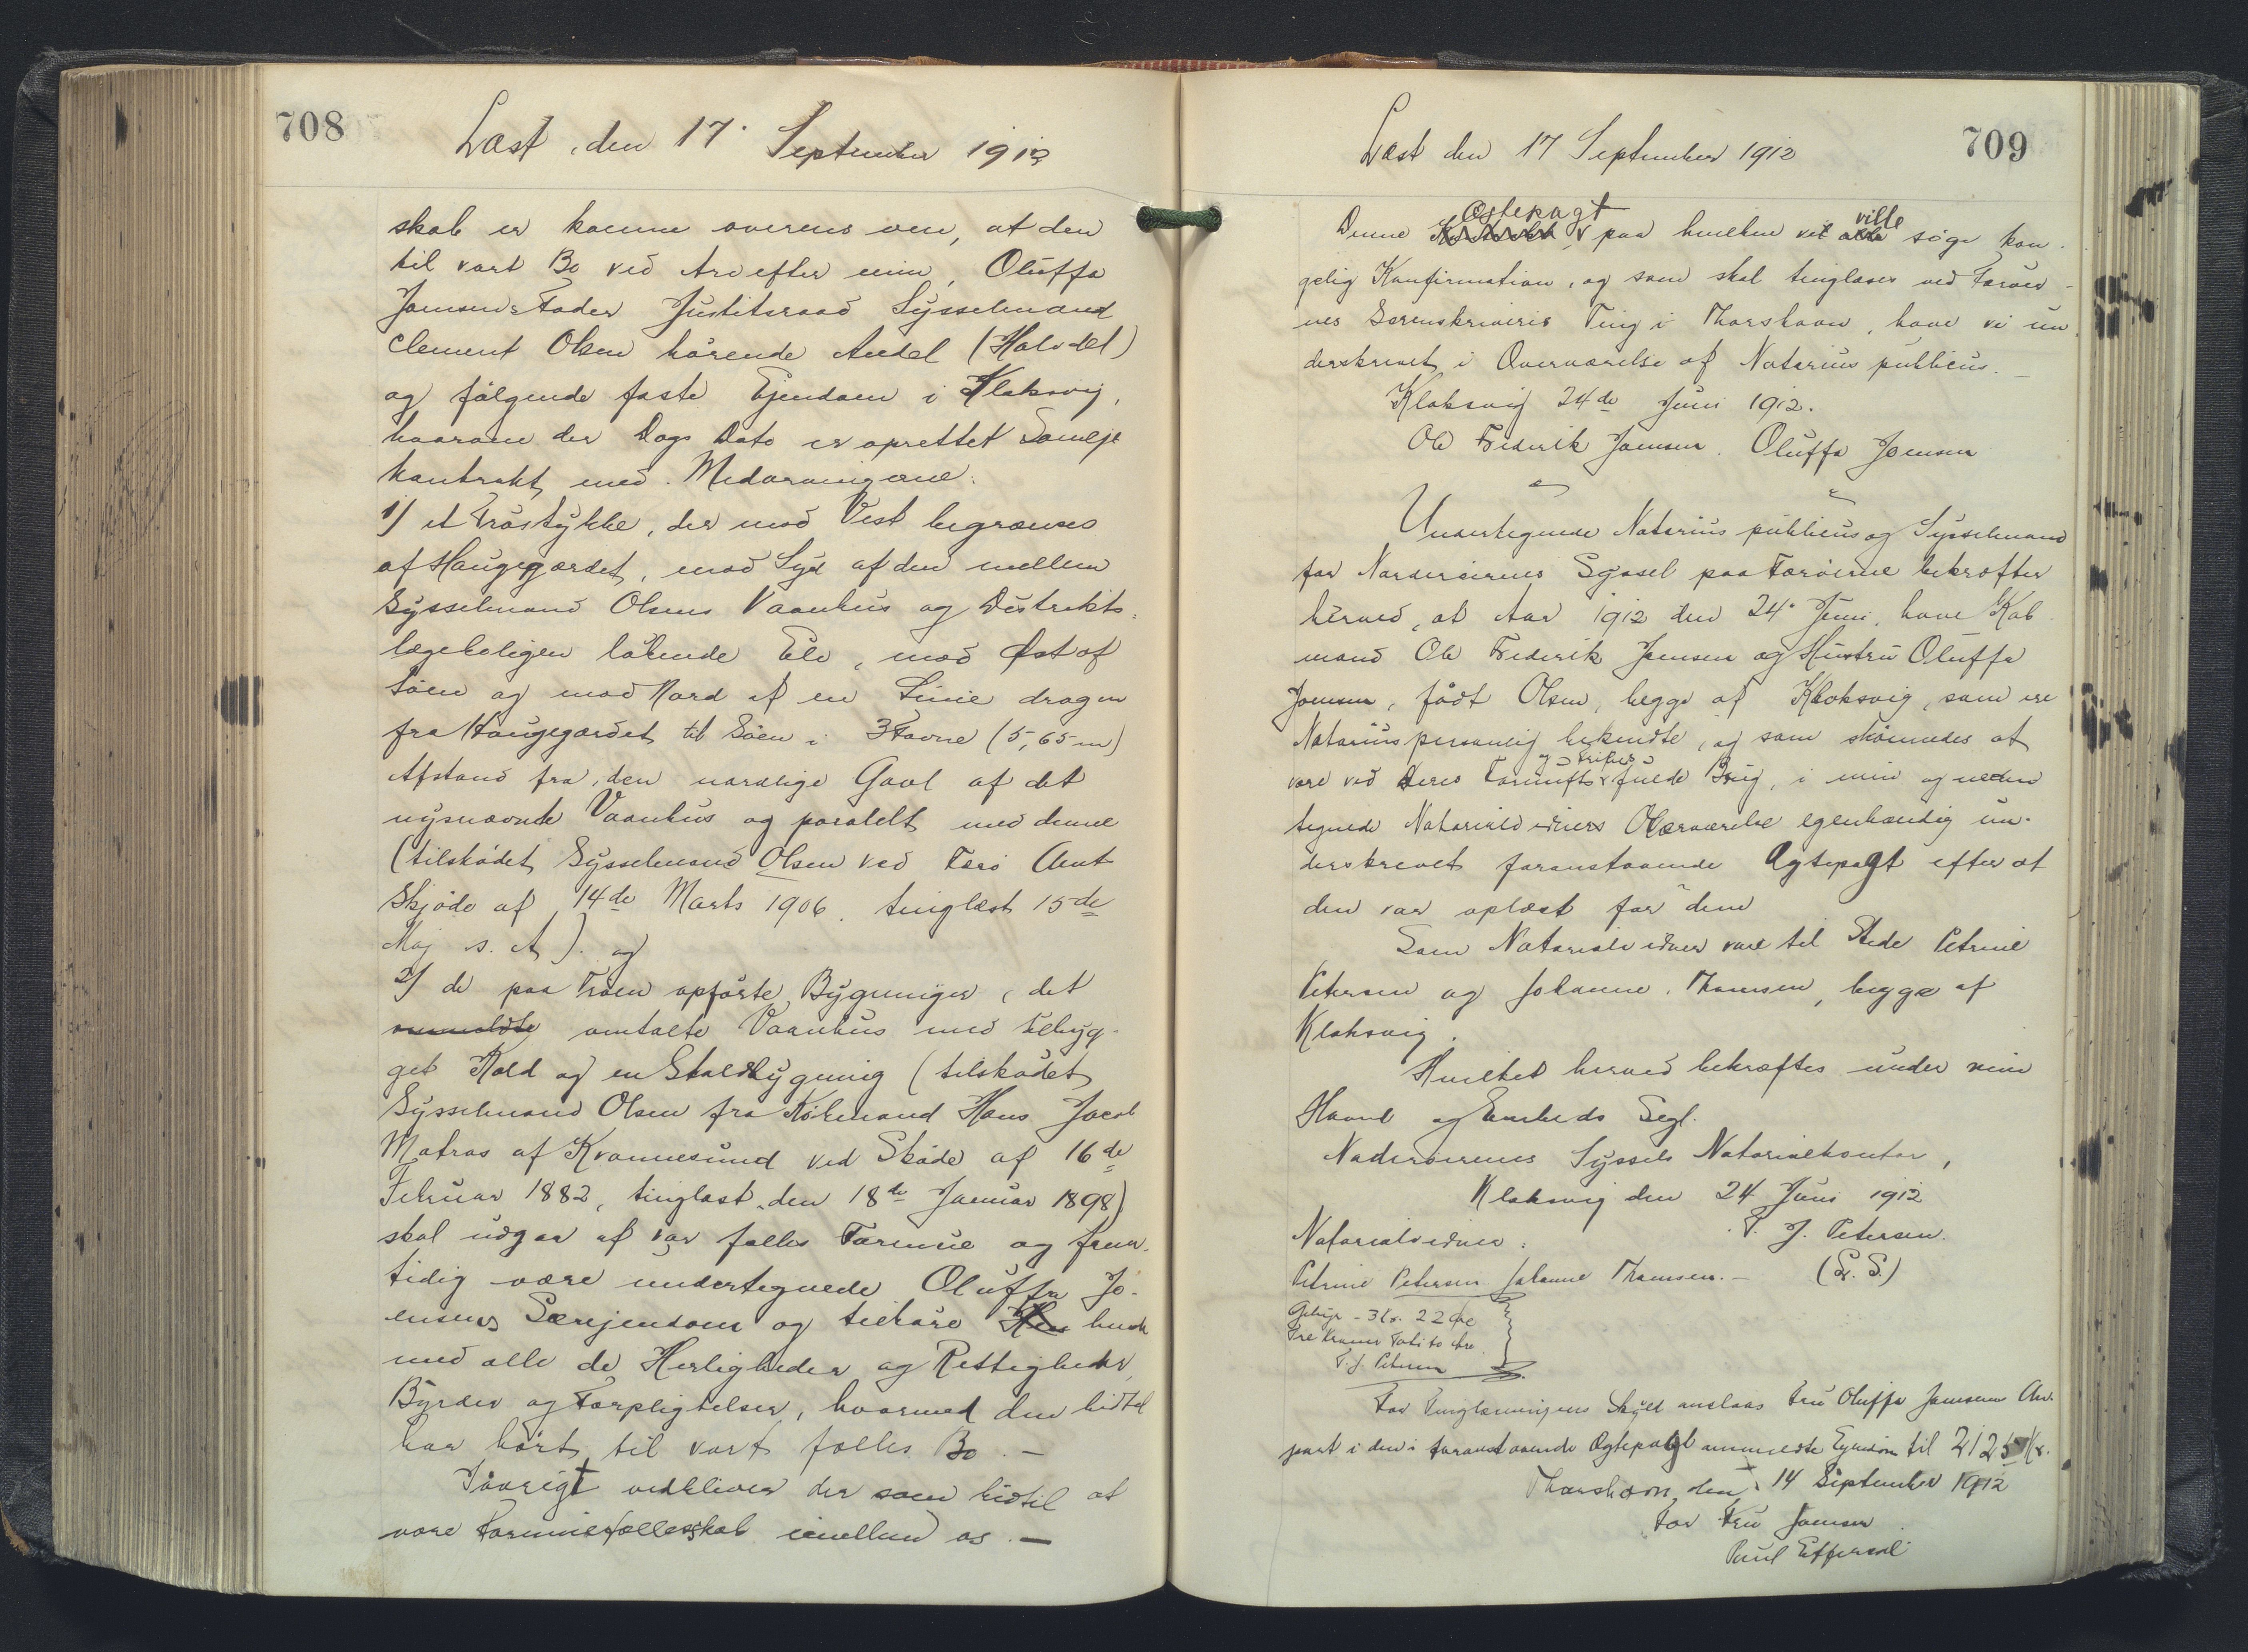 708
Læst, den 17. September 1912
skab er komne overens om, at den
til vort Bo ved Arv efter min, Oluffa
Joensens Fader Justitsraad Sysselmand
Clement Olsen hørende Andel (Halvdel)
og følgende faste Ejendom i Klaksvig,
hvorom der Dags Dato er oprettet Sameje
kontrakt med Medarvingerne:
1/ et Trøstykke, der mod Vest begrænses
af Haugegærdet, mod Syd af den mellem
Sysselmand Olsens Vaanhus og Distrikts=
lægeboligen løbende Elv, mod Øst af
Søen og mod Nord af en Linie dragen
fra Haugegærdet til Søen i 3 Favne (5,65 m)
Afstand fra den nordlige Gavl af det
nysnævnte Vaanhus og paralelt med denne
(tilskødet Sysselmand Olsen ved Færø Amt
Skjøde af 14de Marts 1906. tinglæst 15de
Maj s. A). og
2/ de paa Trøen opførte Bygninger, det
ommeldte omtalte Vaanhus med tilbyg-
get Kold og en Staldbygning (tilskødet
Sysselmand Olsen fra Købmand Hans Jacob
Matras af Kvannesund ved Skøde af 16de
Februar 1882, tinglæst den 18de Januar 1898)
skal udgaa af vor fælles Formue og frem-
tidig være undertegnede Oluffa Jo-
ensens Særejendom og tilhøre Hen hende
med alle de Herligheder og Rettigheder,
Byrder og Forpligtelser, hvormed den hidtil
har hørt til vort fælles Bo. —
Iøvrigt vedbliver der som hidtil at
være Formuefællesskab imellem os. —
709
Læst den 17 September 1912
Ægtepagt
ville
Denne paa hvilken vi søge kon-
gelig Konfirmation, og som skal tinglæses ved Færøer-
nes Sorenskriveris Ting i Thorshavn, have vi un-
derskrevet i Overværelse af Notarius publicus. —
Klaksvig 24de Juni 1912.
Ole Frederik Joensen. Oluffa Joensen
Undertegnede Notarius publicus og Sysselmand
for Norderøernes Syssel paa Færøerne bekræfter
herved, at Aar 1912 den 24. Juni, have Køb-
mand Ole Frederik Joensen og Hustru Oluffa
Joensen, født Olsen, begge af Klaksvig, som ere
Notarius personlig bekendte, og som skønnedes at
og Friheds
være ved deres Fornufts fulde Brug, i min og neden
tegnede Notarialvidners Overværelse egenhændig un-
derskrevet foranstaaende Ægtepagt efter at
den var oplæst for dem
Som Notarialvidner vare til Stede Petrine
Petersen og Johanne Thomsen, begge af
Klaksvig.
Hvilket herved bekræftes under min
Haand og Embeds Segl.
Norderøernes Syssels Notarialkontor,
Klaksvig den 24 Juni 1912
P. J. Petersen.
Notarialvidner:
Petrine Petersen Johanne Thomsen. — (L. S.)
Gebyr - 3 Kr. 22 Øre
Tre Kroner To ti to Øre
P. J. Petersen
For Tinglæsningens Skyld anslaas Fru Oluffa Joensens An-
part i den i foranstaaende Ægtepagt ommeldte Ejendom til 2125 Kr.
Thorshavn, den 14 September 1912
For Fru Joensen
Poul Effersøe